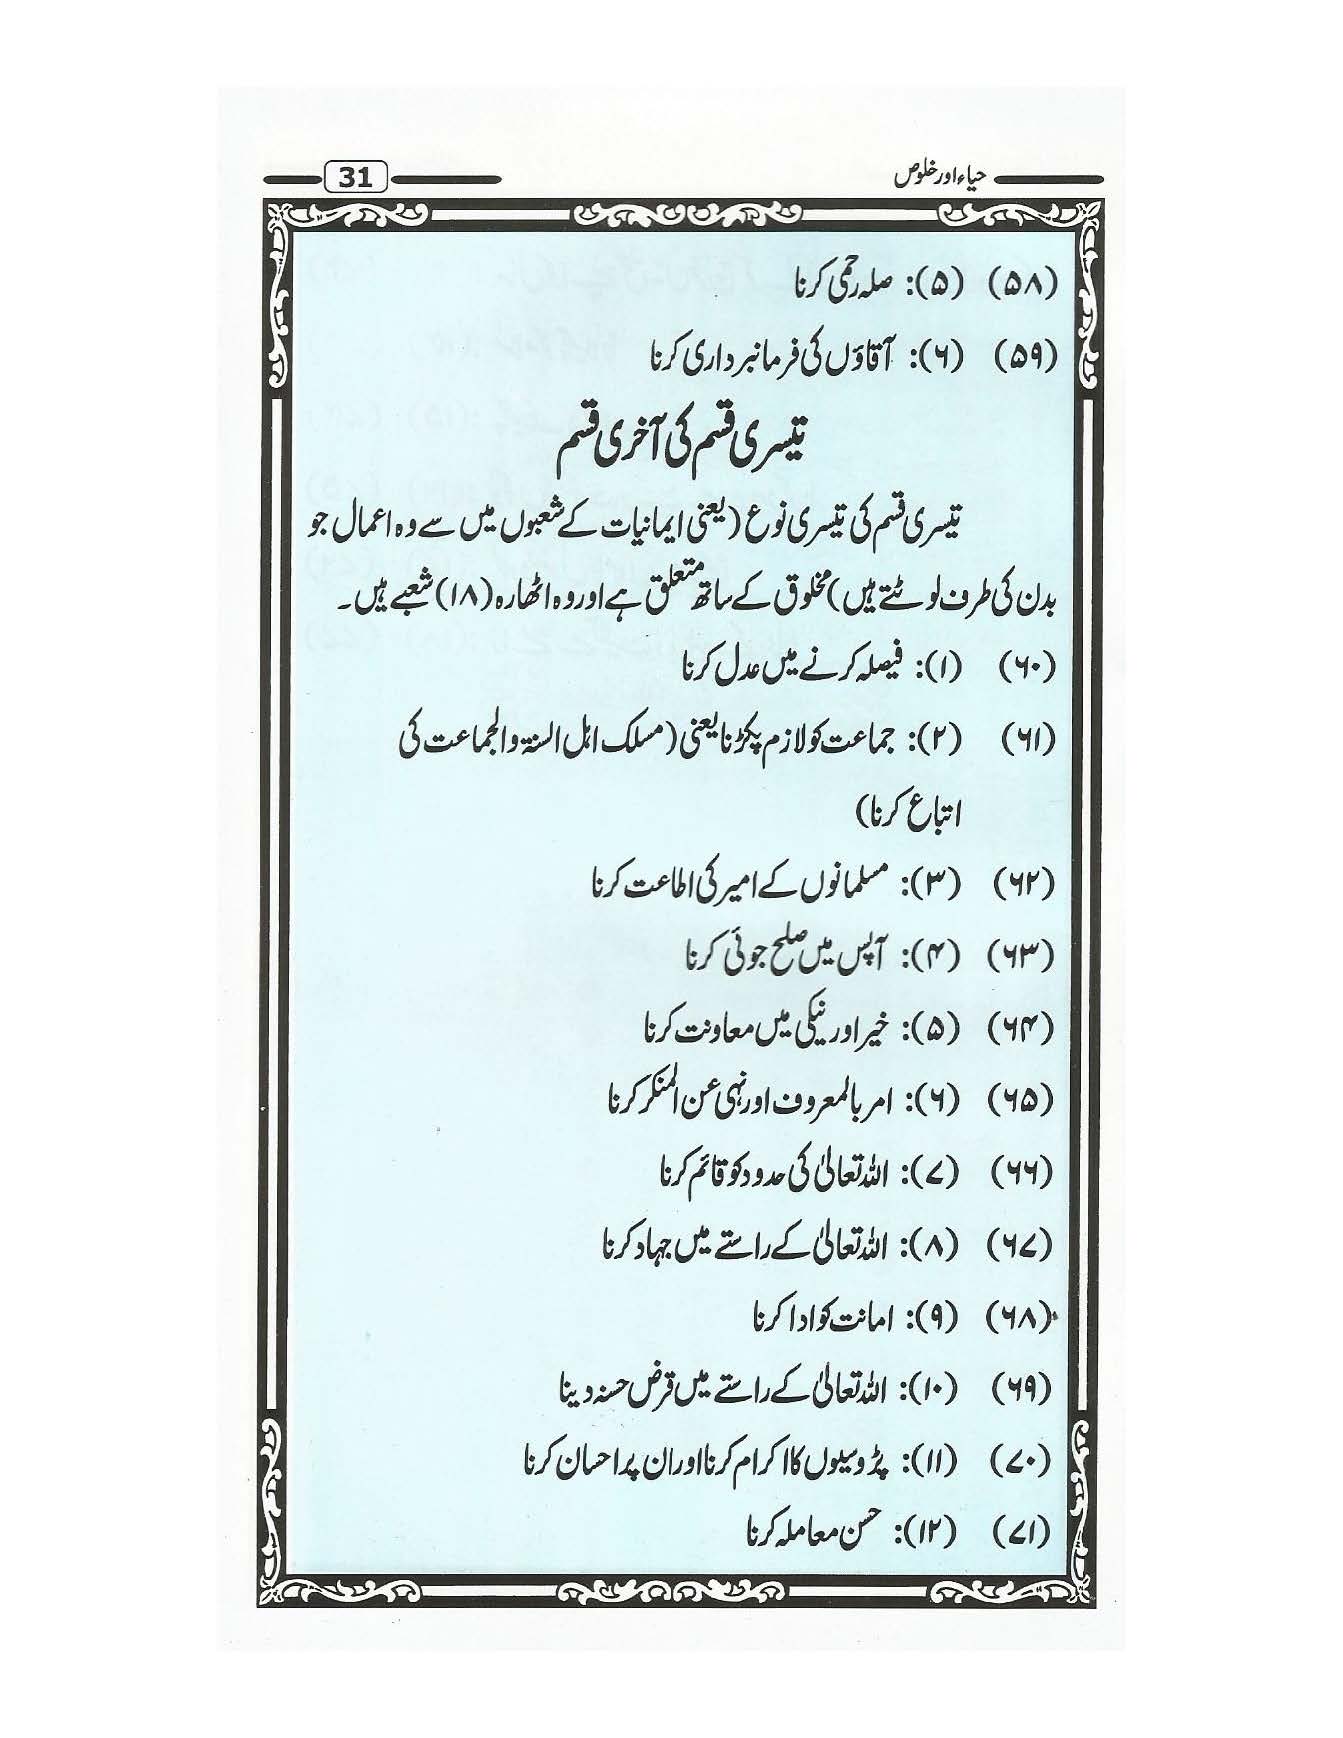 حیاء اور خلوص 31
(۵۸) (۵): صلہ رحمی کرنا
(۵۹) (۶): آقاؤں کی فرمانبرداری کرنا
تیسری قسم کی آخری قسم
تیسری قسم کی تیسری نوع (یعنی ایمانیات کے شعبوں میں سے وہ اعمال جو
بدن کی طرف لوٹتے ہیں) مخلوق کے ساتھ متعلق ہے اور وہ اٹھارہ (۱۸) شعبے ہیں۔
(۶۰) (۱): فیصلہ کرنے میں عدل کرنا
(۶۱) (۲): جماعت کو لازم پکڑنا یعنی (مسلک اہل السنۃ والجماعت کی
اتباع کرنا)
(۶۲) (۳): مسلمانوں کے امیر کی اطاعت کرنا
(۶۳) (۴): آپس میں صلح جوئی کرنا
(۶۴) (۵): خیر اور نیکی میں معاونت کرنا
(۶۵) (۶): امر بالمعروف اور نہی عن المنکر کرنا
(۶۶) (۷): اللہ تعالیٰ کی حدود کو قائم کرنا
(۶۷) (۸): اللہ تعالیٰ کے راستے میں جہاد کرنا
(۶۸) (۹): امانت کو ادا کرنا
(۶۹) (۱۰): اللہ تعالیٰ کے راستے میں قرض حسنہ دینا
(۷۰) (۱۱): پڑوسیوں کا اکرام کرنا اور ان پر احسان کرنا
(۷۱) (۱۲): حسن معاملہ کرنا